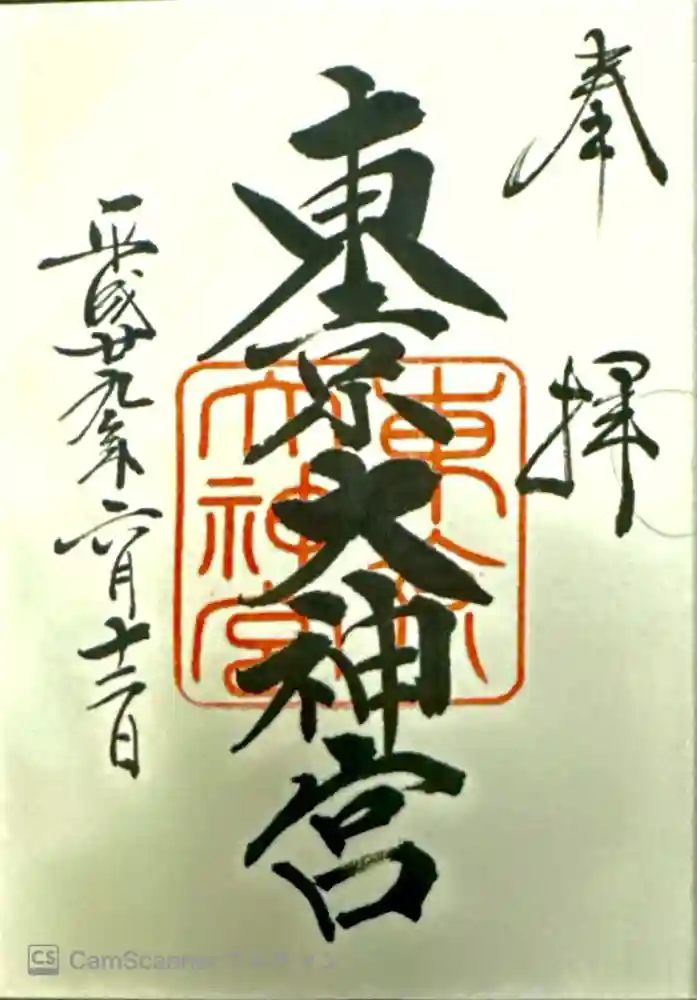 奉拝
東京大神宮
東京
大神宮
平成廿九年六月十二日
CamScanner